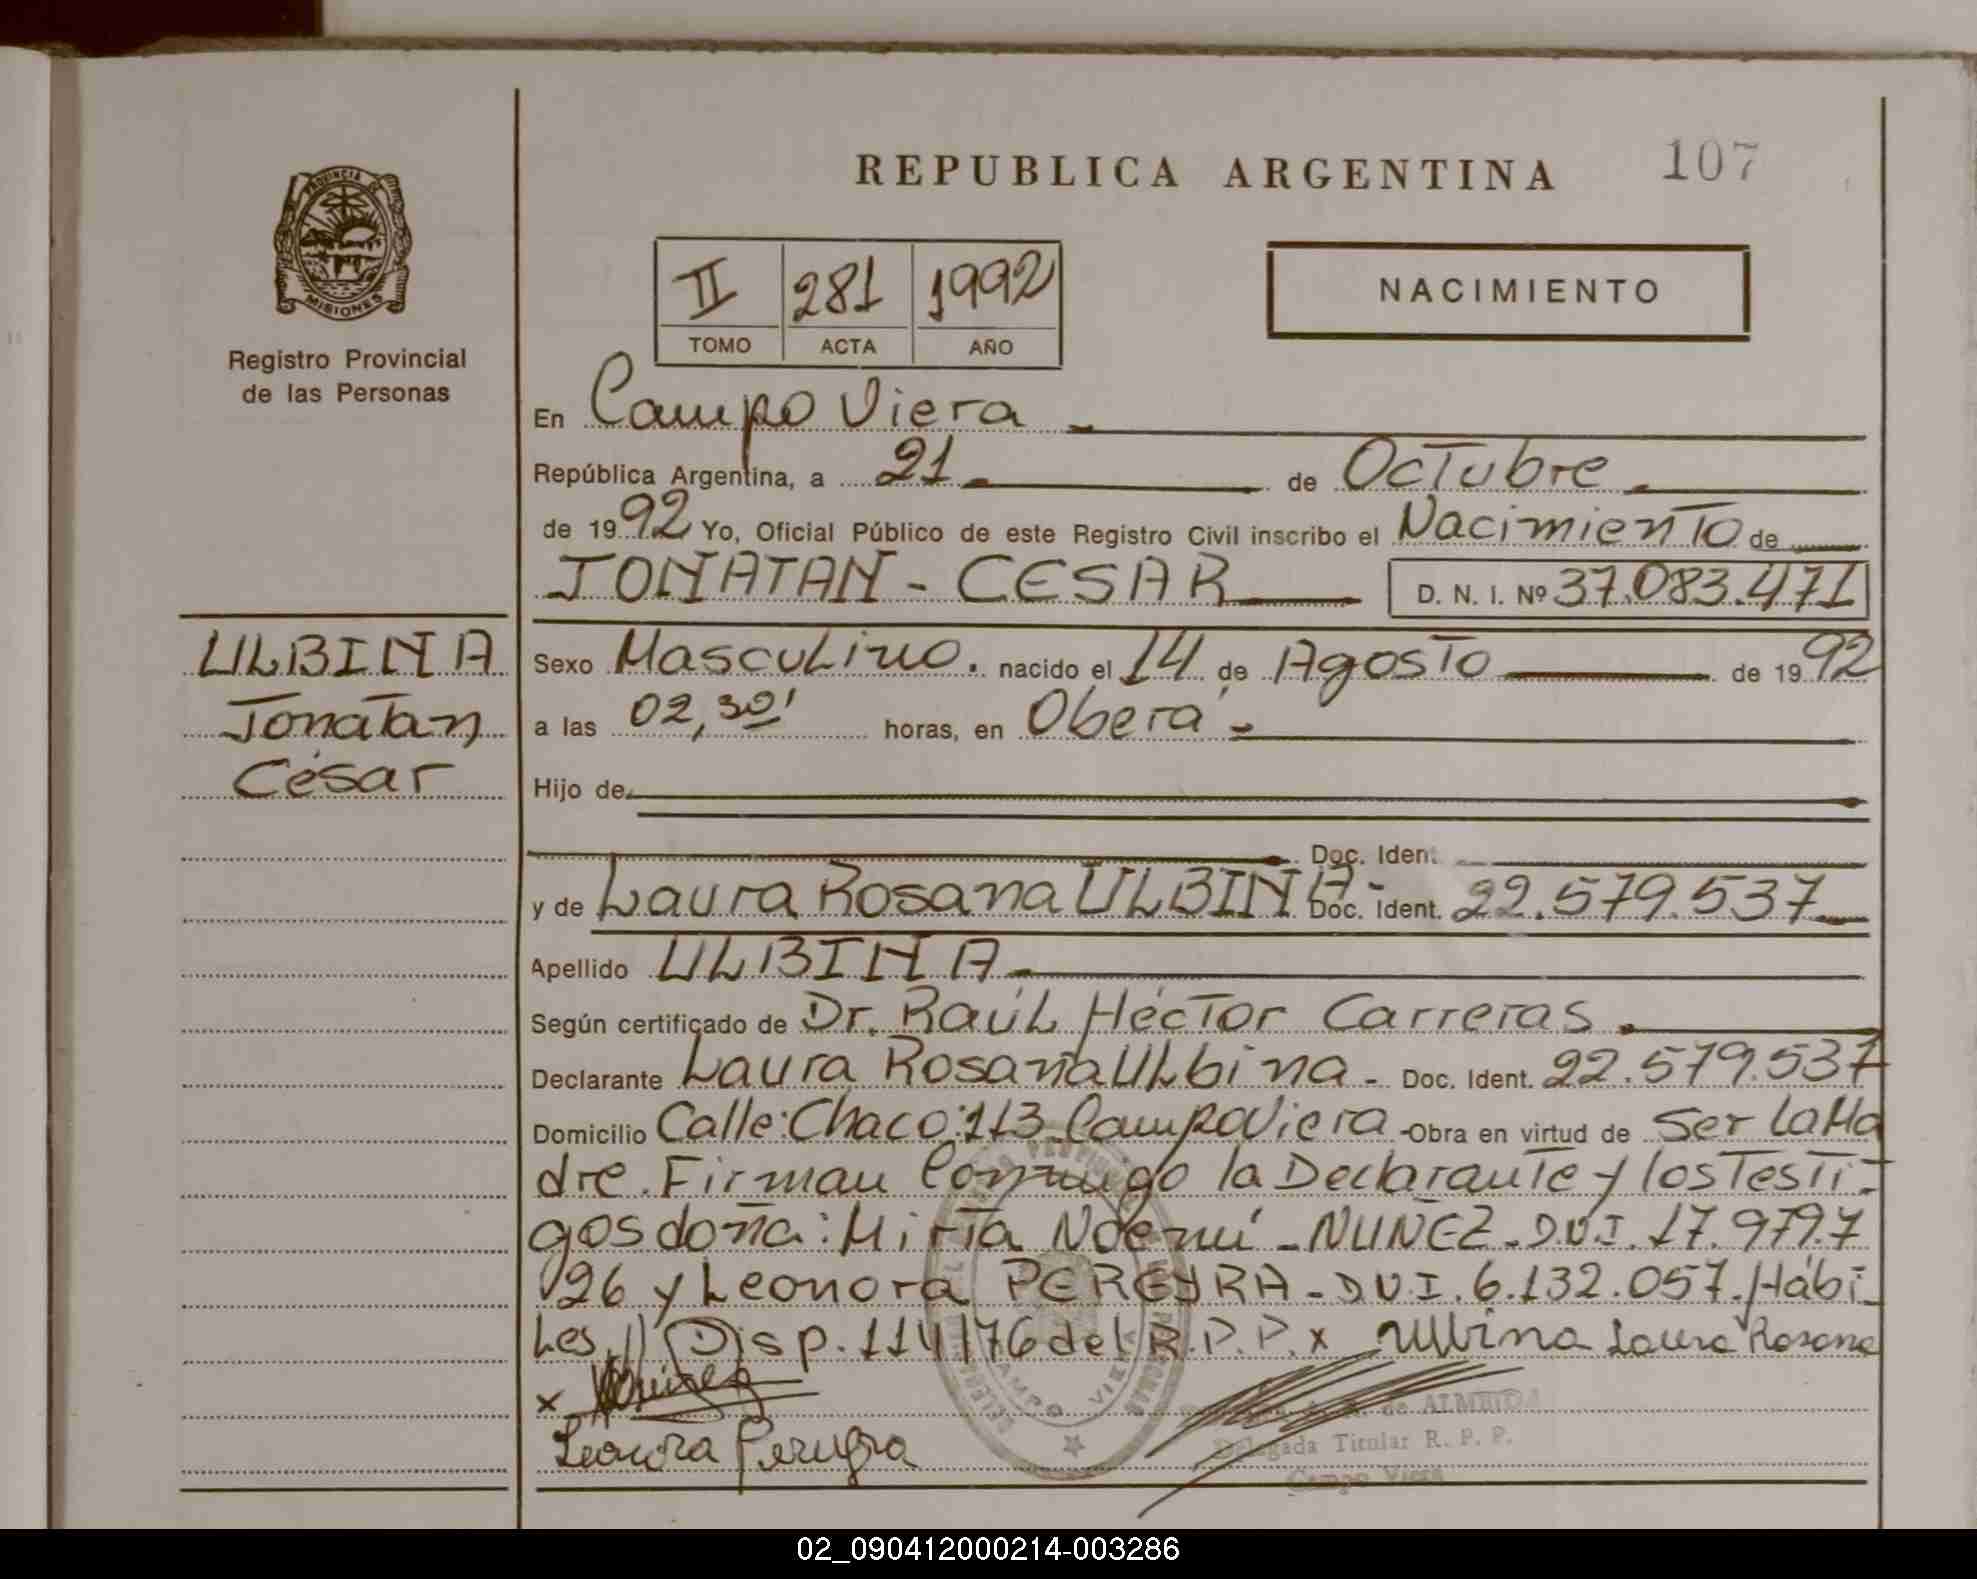 REPUBLICA ARGENTINA
107
PROVINCIA DE
MISIONES
Registro Provincial
de las Personas
II 281 1992
TOMO ACTA AÑO
NACIMIENTO
En Campo Viera
República Argentina, a 21 de Octubre
de 1992 Yo, Oficial Público de este Registro Civil inscribo el Nacimiento de
JONATAN - CESAR D. N. I. Nº 37.083.471
ULBINA
Jonatan
César
Sexo Masculino. nacido el 14 de Agosto de 1992
a las 02,30' horas, en Oberá
Hijo de
Doc. Ident.
y de Laura Rosana ULBINA- Doc. Ident. 22.579.537
Apellido ULBINA
Según certificado de Dr. Raúl Héctor Carreras.
Declarante Laura Rosana Ulbina - Doc. Ident. 22.579.537
Domicilio Calle: Chaco: 113 Campo Viera - Obra en virtud de Ser la Ma
dre. Firman Conmigo la Declarante y los Testi-
gos doña: Mirta Noemí - NUÑEZ - D.N.I. 17.979.7
26 y Leonora PEREYRA - D.N.I. 6.132.057. Hábi-
les.// Disp. 114/76 del R.P.P. x Ulbina Laura Rosana
x
Leonora Pereyra
de ALMEIDA
Delegada Titular R. P. P.
Campo Viera
02_090412000214-003286